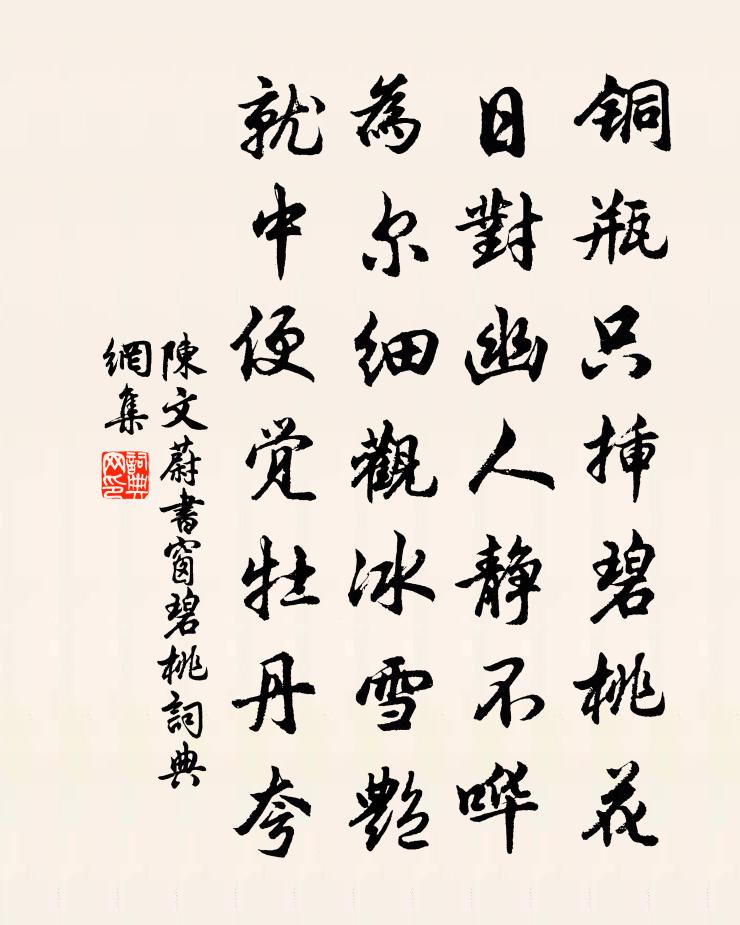 銅瓶只挿碧桃花
日對幽人静不哗
為尔细觀冰雪艷
就中便觉牡丹夸
陳文蔚書窗碧桃詞典
網集
詞典
网印